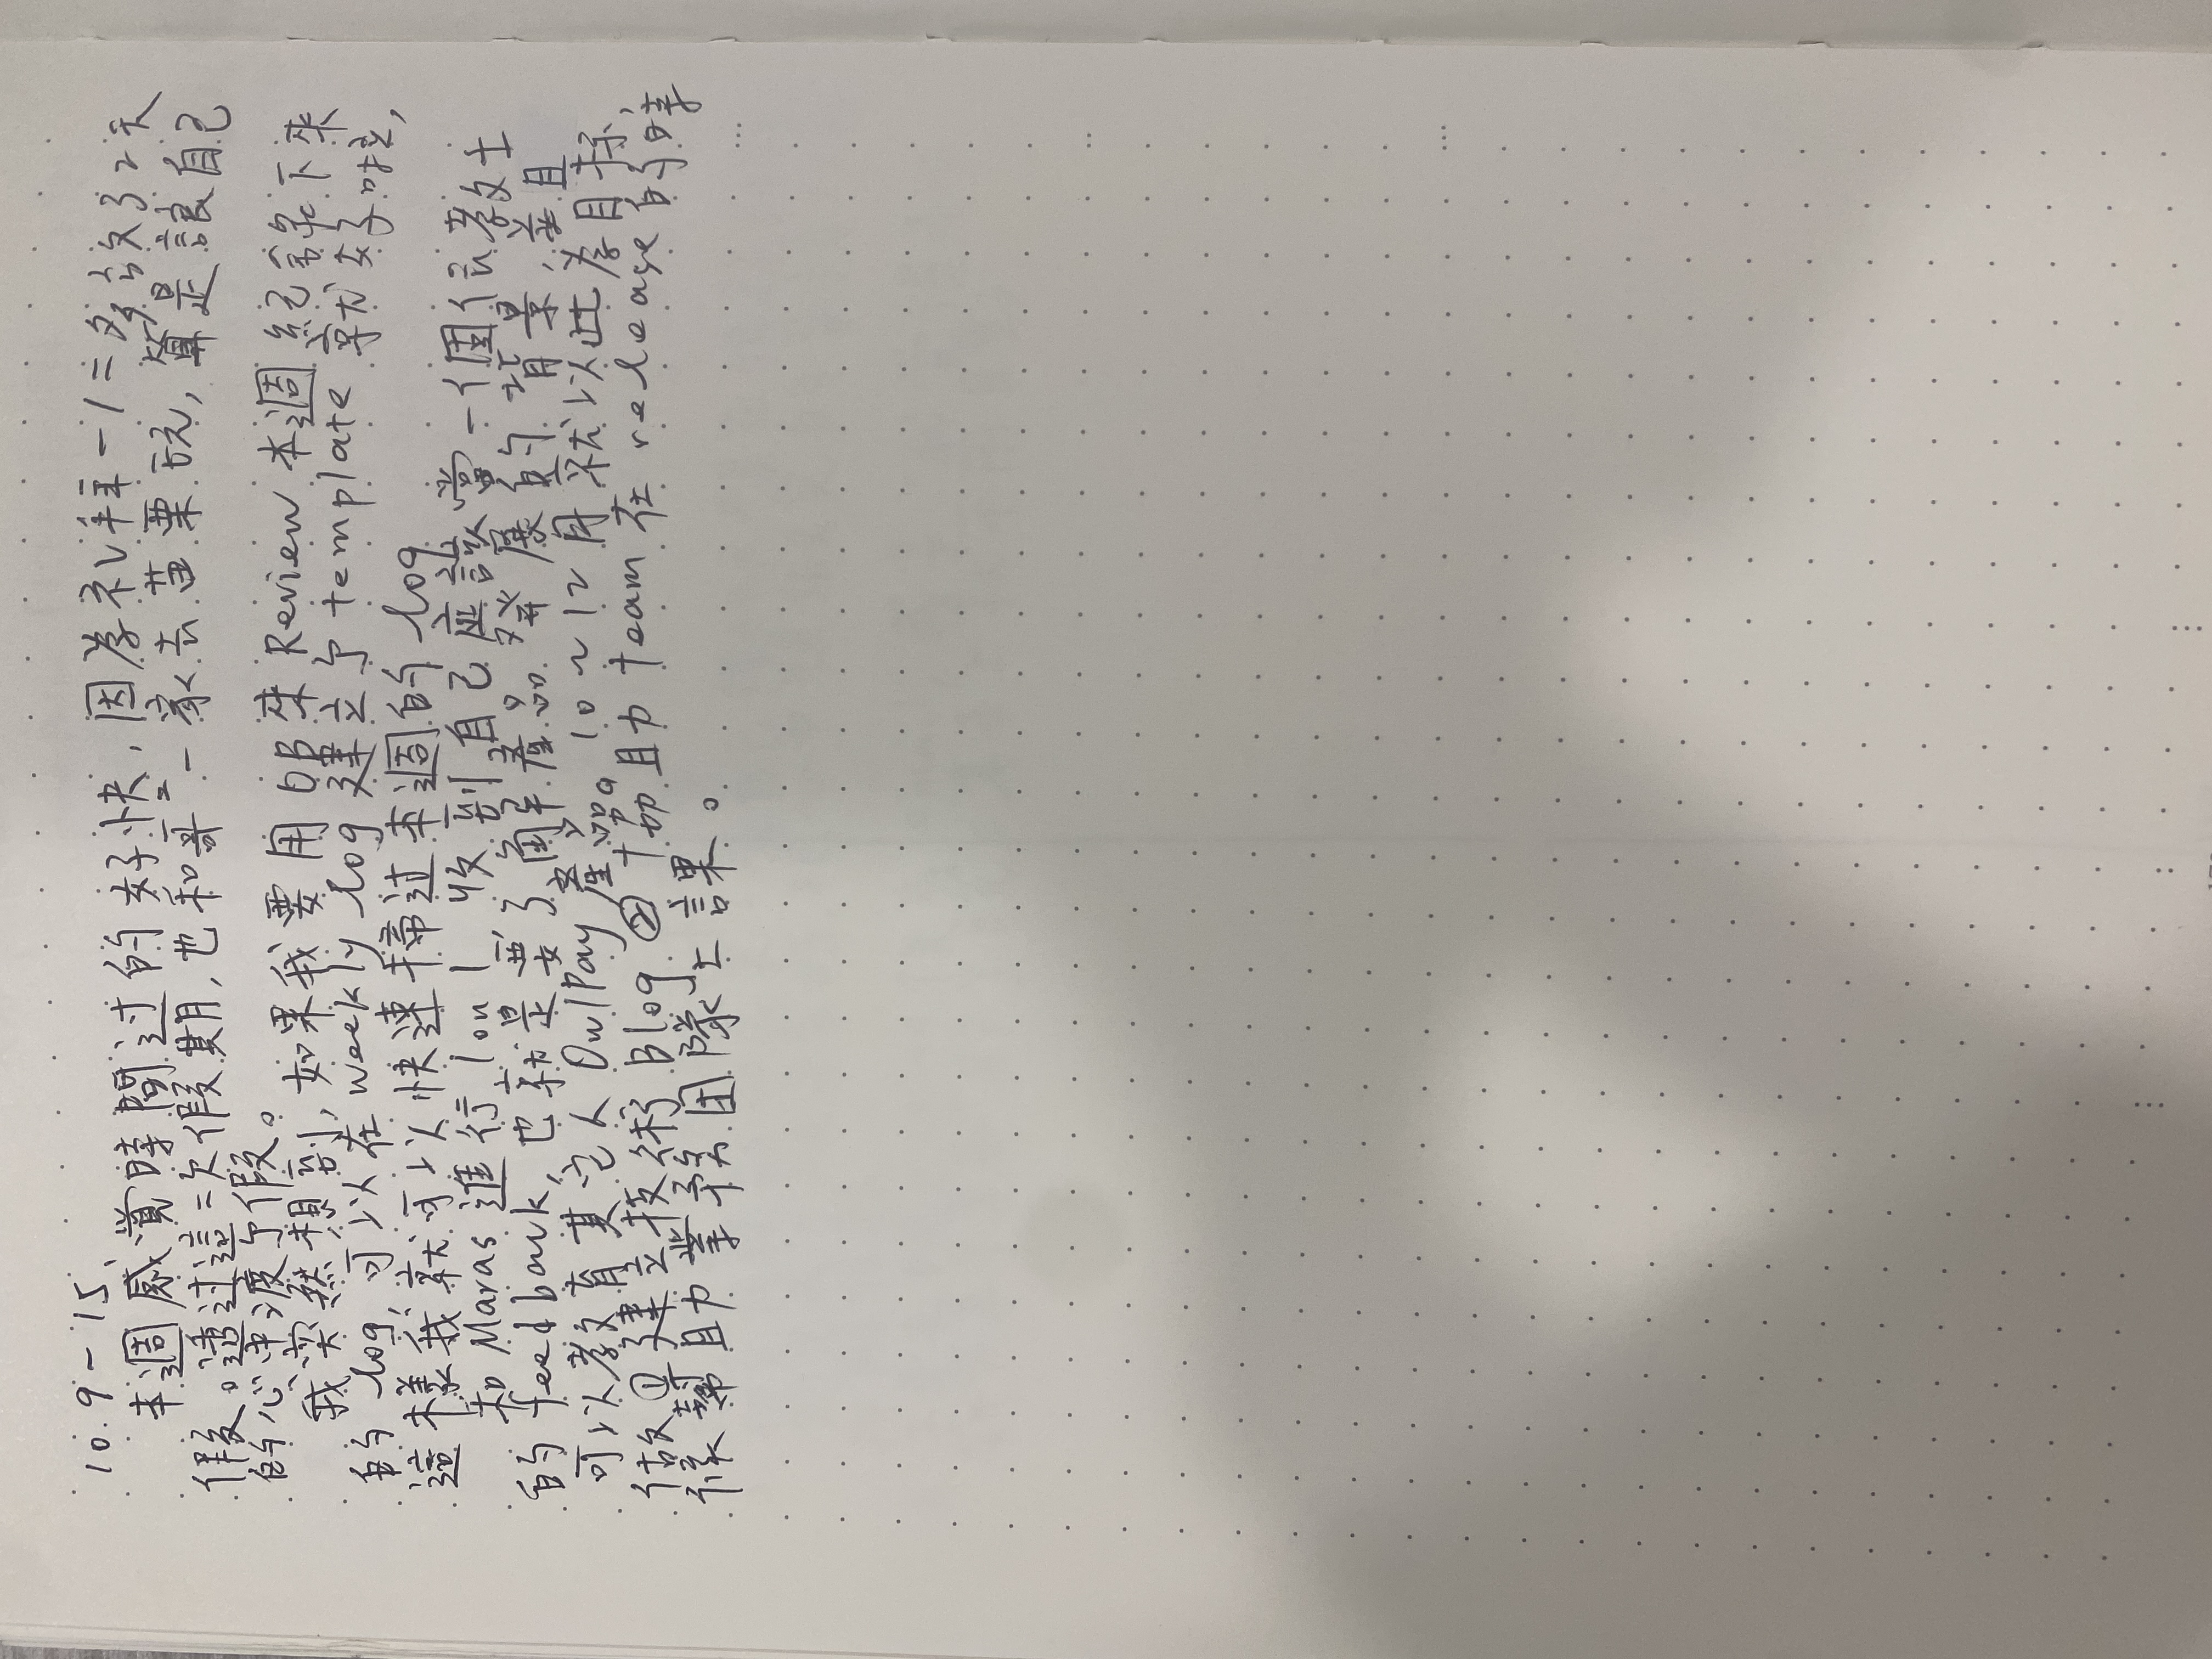 10.9-15、
本週感覺時間过的好快，因為礼拜一、二多放了2天
假。透过這次假期，也和哥哥一家去苗栗玩，算是讓自己
的心中渡了假。
我突然想到，如果我要用OB來Review本週紀錄下來
的log，可以在weekly log建立了template就好啦，
這樣我就可以快速掃过本週的log
和Maras進行1 on 1，收到自己應該當一個佈教士
的feedback，也就是要了解產品發展的背景，並且
可以教育其它人OwlPay產品。10~12月就以此為目標，
做①建立技術Blog ②協助team在release的時
候幫助業務團隊上課。